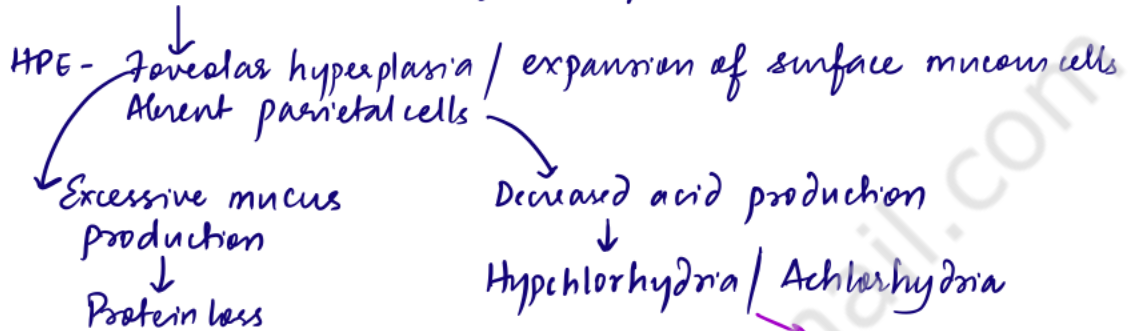 HPE - Foveolar hyperplasia / expansion of surface mucous cells
Absent parietal cells
Excessive mucus
production
Protein loss
Decreased acid production
Hypchlorhydria / Achlorhydria
ail.com